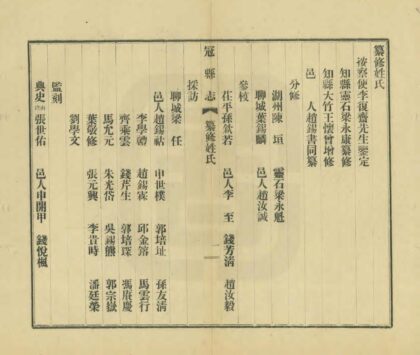 纂修姓氏
按察使李復齋先生鑒定
知縣靈石梁永康纂修
知縣大竹王懷曾增修
邑 人趙錫書同纂
分修
湖州陳 垣 靈石梁永魁
聊城葉錫麟 邑人趙汝誠
參校
茌平孫欽若 邑人李 至 錢芳濤 趙汝毅
冠縣志 纂修姓氏 一
採訪
聊城梁 任
邑人趙錫祜 申世模 郭培址 孫友清
李學禮 趙錫 邱金鎔 馬雲行
齊乘雲 錢芹生 郭培琛 馮賡慶
馬允元 朱光岱 吳錫熊 郭宗嶽
葉敬修 張元興 李貴時 潘廷榮
劉學文
監刻
典史 張世佑 邑人申開甲 錢悅楓